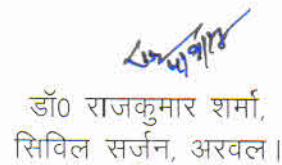 डॉ0 राजकुमार शर्मा,
सिविल सर्जन, अरवल।